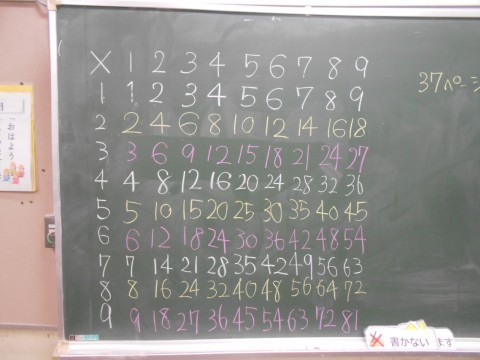 X 1 2 3 4 5 6 7 8 9
1 1 2 3 4 5 6 7 8 9
2 2 4 6 8 10 12 14 16 18
3 3 6 9 12 15 18 21 24 27
4 4 8 12 16 20 24 28 32 36
5 5 10 15 20 25 30 35 40 45
6 6 12 18 24 30 36 42 48 54
7 7 14 21 28 35 42 49 56 63
8 8 16 24 32 40 48 56 64 72
9 9 18 27 36 45 54 63 72 81
37ページ
「おはよう
書かない ます